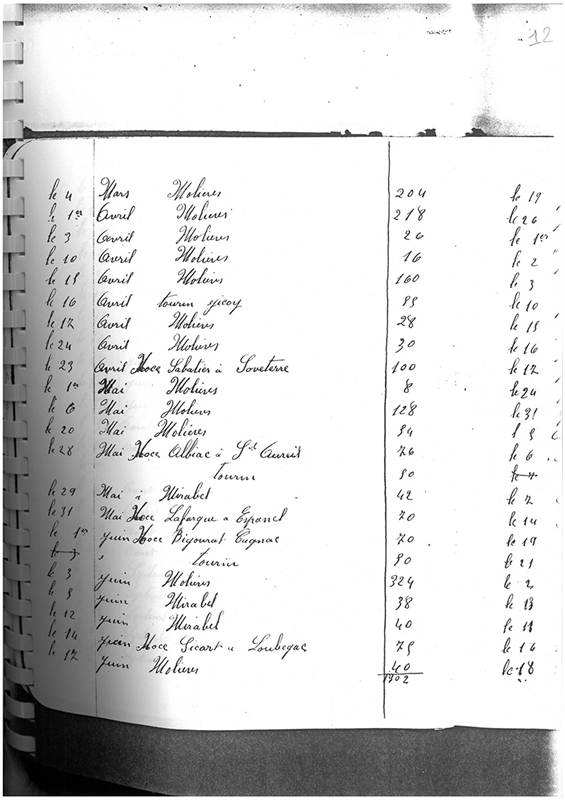 12
le 4 Mars Molieres 204 le 19
le 1er Avril Molieres 218 le 26
le 3 Avril Molieres 26 le 1er
le 10 Avril Molieres 16 le 2
le 15 Avril Molieres 160 le 3
le 16 Avril tourin 85 le 10
le 17 Avril Molieres 28 le 15
le 24 Avril Molieres 30 le 16
le 23 Avril Noce Sabatier à Soveterre 100 le 17
le 1er Mai Molieres 8 le 24
le 6 Mai Molieres 128 le 31
le 20 Mai Molieres 54
le 28 Mai Noce Albiac à 76 le 6
tourin 50
le 29 Mai à Mirabel 42 le 7
le 31 Mai Noce Lafargue a Espanel 70 le 14
le 1er Juin Noce Bigourat Cagnac 70 le 19
tourin 50 le 21
le 3 Juin Molieres 324 le 2
le 5 Juin Mirabel 38 le 13
le 12 Juin Mirabel 40 le 11
le 14 Juin Noce Sicart a Loubejac 75 le 16
le 17 Juin Molieres 40 le 18
1902